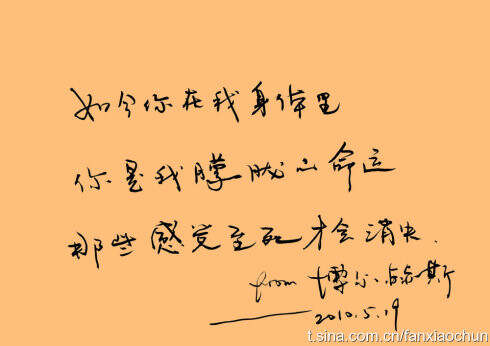 如今你在我身体里
你是我朦胧的命运
那些感觉至死才会消失.
from 博尔赫斯
2010.5.19
t.sina.com.cn/fanxiaochun